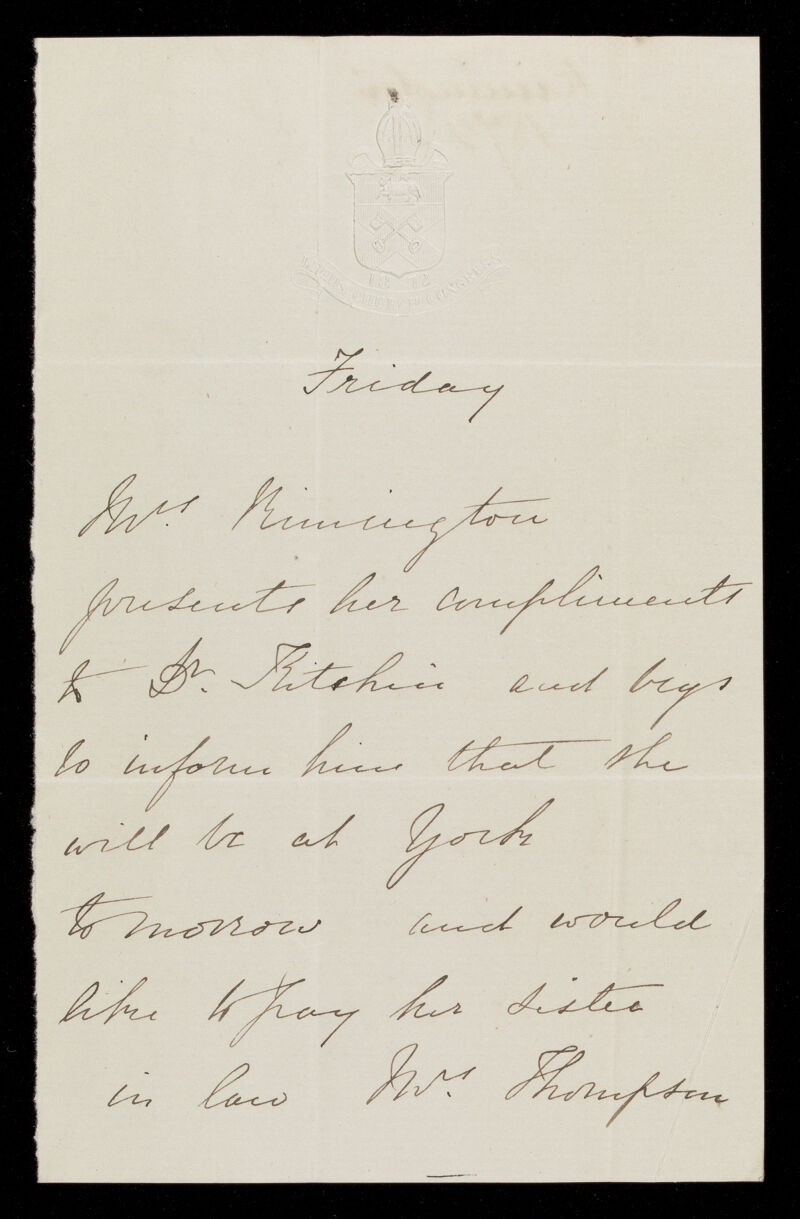 18 72
LEEDS CHURCH CONGRESS
Friday
Mrs. Rimington
presents her compliments
to Dr. Kitchin and begs
to inform him that she
will be at York
tomorrow and would
like to pay her sister
in law Mrs. Thompson